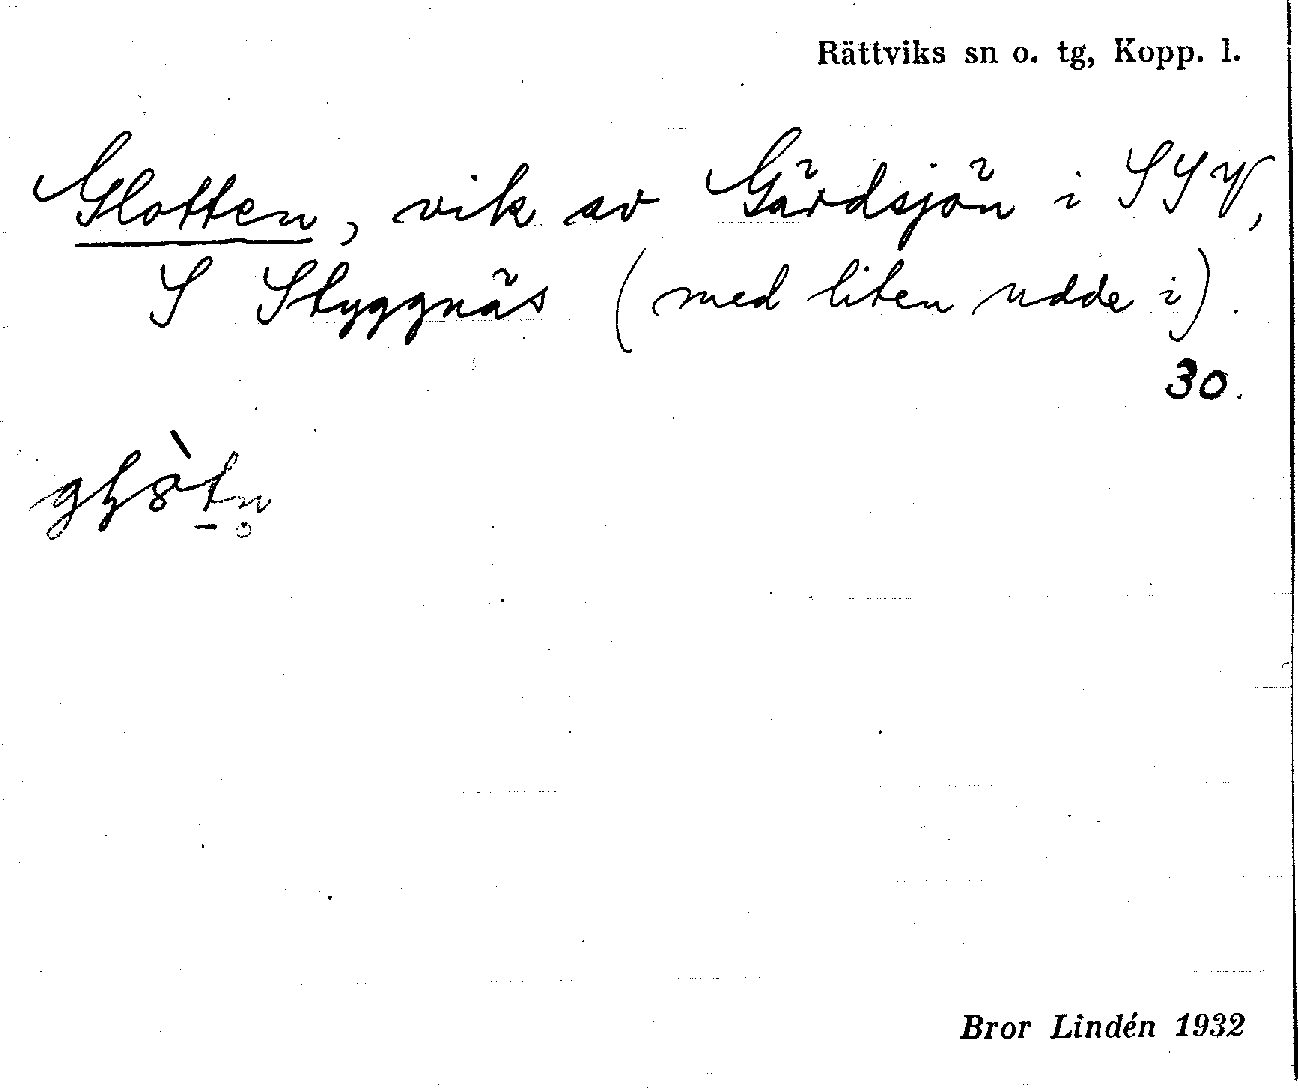 Rättviks sn o. tg, Kopp. l.
Glotten, vik av Gärdsjön i SSV,
S Styggnäs (med liten udde i).
30.
Bror Lindén 1932